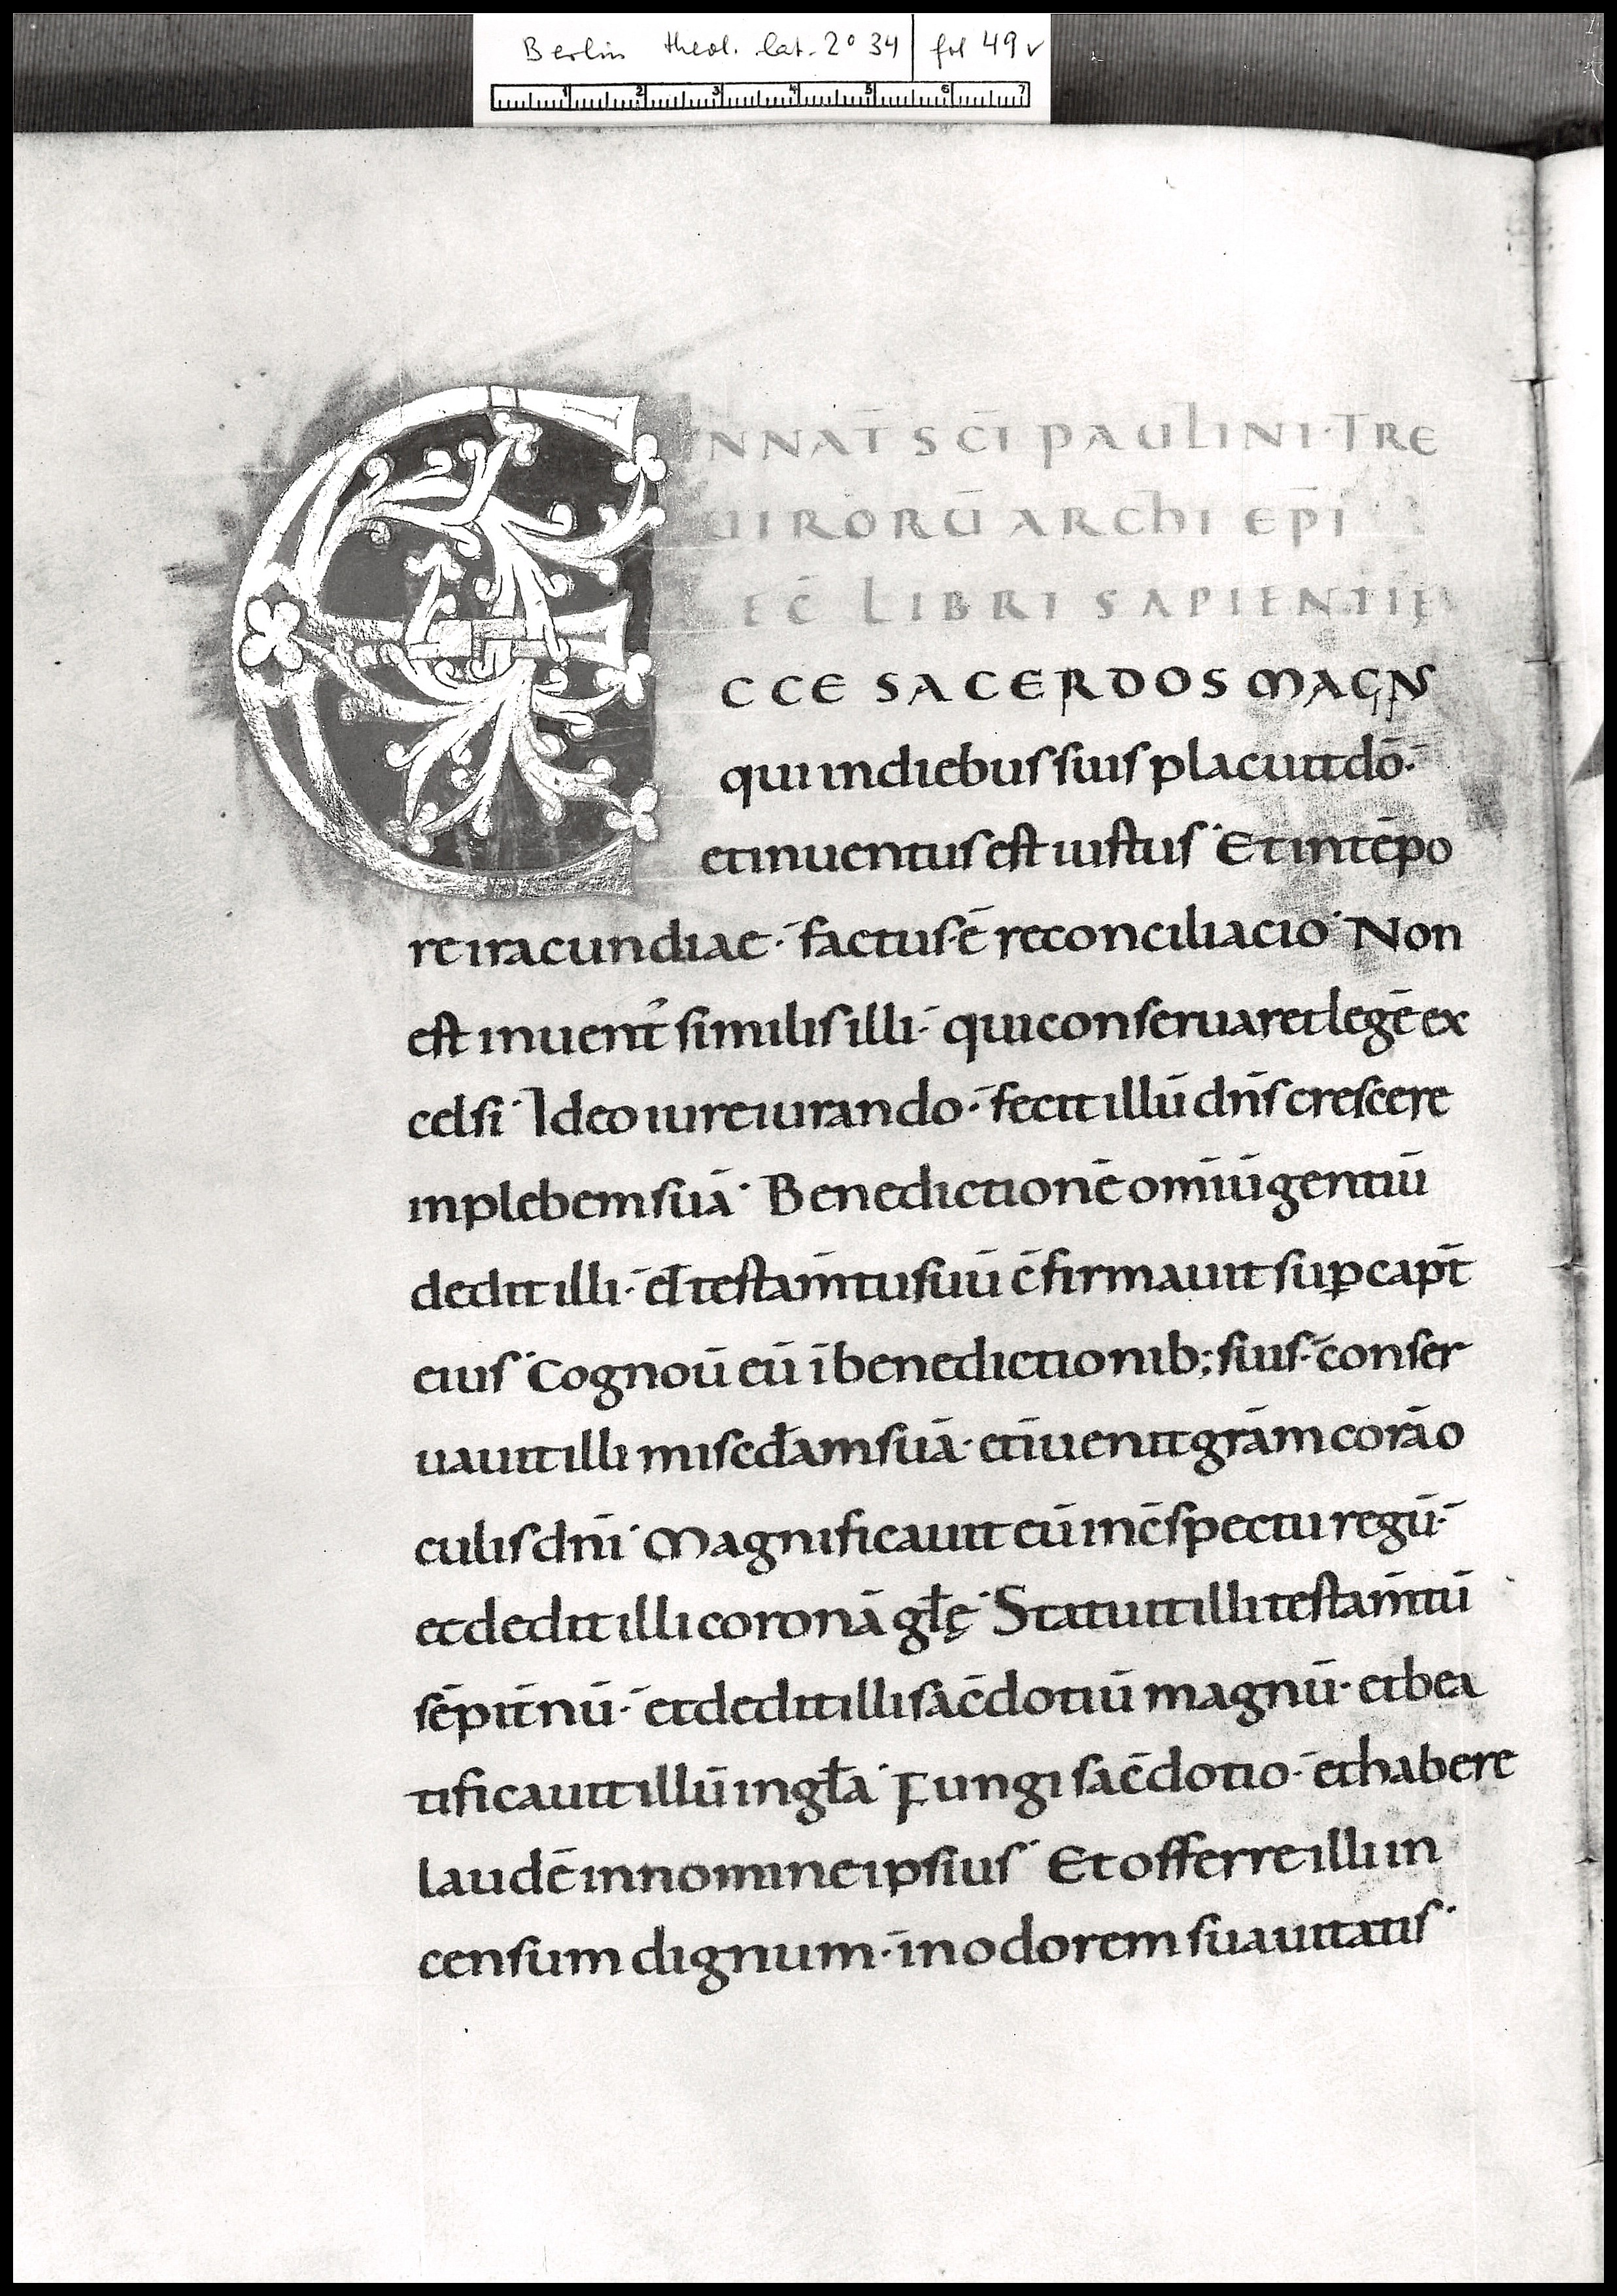 Berlin theol. lat. 2° 34 | fol 49v
1 2 3 4 5 6 7
IN NAT̄ SC̄I PAULINI·TRE
UIRORŪ ARCHI EP̄I
LEC̄ LIBRI SAPIENTIĘ
ECCE SACERDOS MAGNS
qui in diebus suis placuit dō·
et inuentus est iustus· Et in tēpo
re iracundiae· factus·ē reconciliacio· Non
est inuent᷒ similis illi· qui conseruaret legē ex
celsi· Ideo iureiurando· fecit illū dn̄s crescere
in plebem suā· Benedictionē om̄iū gentiū
dedit illi· et testam̄tu suū c̄firmauit sup̱ cap̄t
eius· Cognoū eū ī benedictionib; suis· conser
uauit illi misc̄dam suā· et īuenit grām corā o
culis dn̄i· Magnificauit eū in c̄spectu regū·
et dedit illi coronā glę̄· Statuit illi testam̄tū
sēpit̄nū· et dedit illi sac̄dotiū magnū· et bea
tificauit illū in gla̅· Fungi sac̄dotio· et habere
laudē in nomine ipsius· Et offerre illi in
censum dignum· in odorem suauitatis·